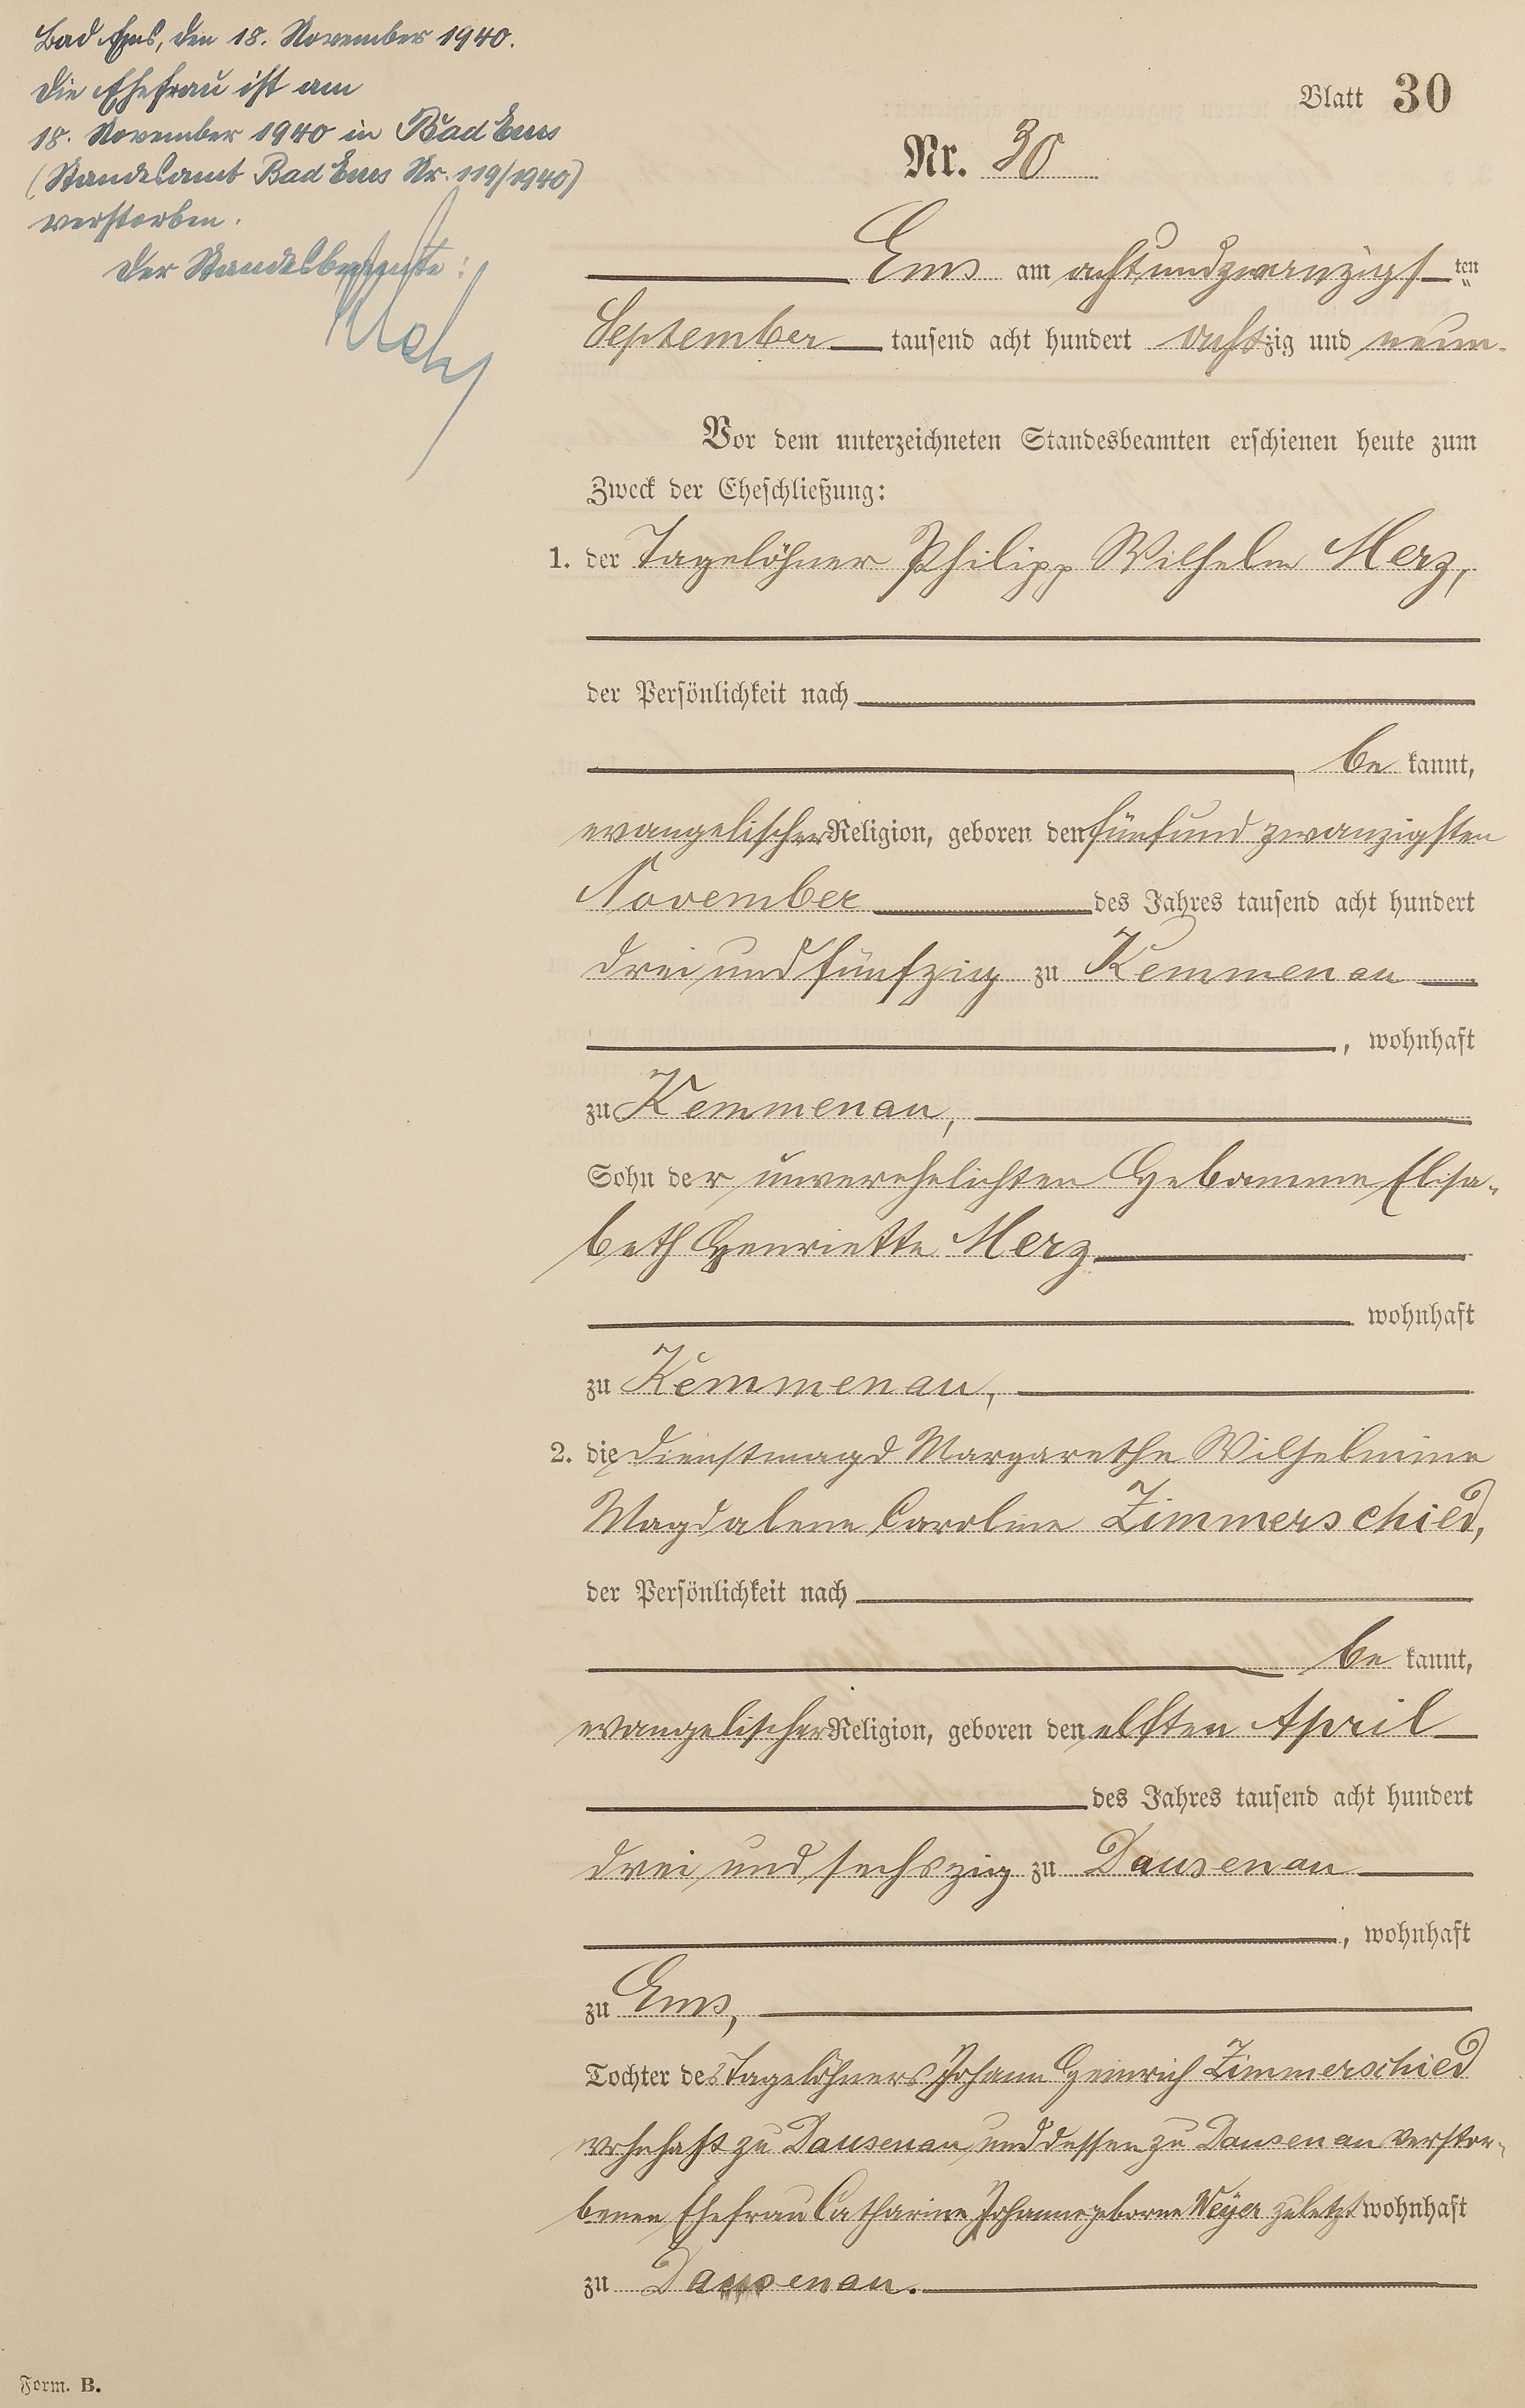 Bad Ems, den 18. November 1940.
Die Ehefrau ist am
18. November 1940 in Bad Ems
(Standesamt Bad Ems Nr. 119/1940)
verstorben.
Der Standesbeamte:
Blatt 30
Nr. 30
Ems am achtundzwanzigsten
September tausend acht hundert achtzig und neun.
Vor dem unterzeichneten Standesbeamten erschienen heute zum
Zweck der Eheschließung:
1. der Tagelöhner Philipp Wilhelm Merz,
der Persönlichkeit nach
be kannt,
evangelischer Religion, geboren den fünfund zwanzigsten
November des Jahres tausend acht hundert
drei und fünfzig zu Kemmenau
, wohnhaft
zu Kemmenau,
Sohn der unverehelichten Hebamme Elisa-
beth Henriette Merz
wohnhaft
zu Kemmenau,
2. die Dienstmagd Margarethe Wilhelmine
Magdalene Caroline Zimmerschied,
der Persönlichkeit nach
be kannt,
evangelischer Religion, geboren den elften April
des Jahres tausend acht hundert
drei und sechszig zu Dausenau
, wohnhaft
zu Ems,
Tochter des Tagelöhners Johann Heinrich Zimmerschied
wohnhaft zu Dausenau und dessen zu Dausenau verstor-
benen Ehefrau Catharine Johanne geborne Weyer zuletzt wohnhaft
zu Dausenau.
Form. B.